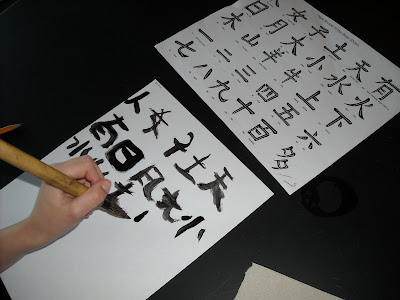 人女子土天有
日月大小水火
木山羊牛上下
一二三四五六
七八九十百多
人女子土天
有日月大小
水